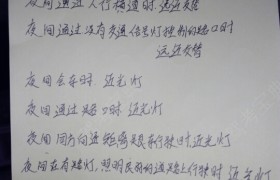 夜间通过人行横道时 远近交替
夜间通过没有交通信号灯控制的路口时
远近交替
夜间会车时 近光灯
夜间通过路口时 近光灯
夜间同方向近距离跟车行驶时 近光灯
夜间在有路灯,照明良好的道路上行驶时 近光灯